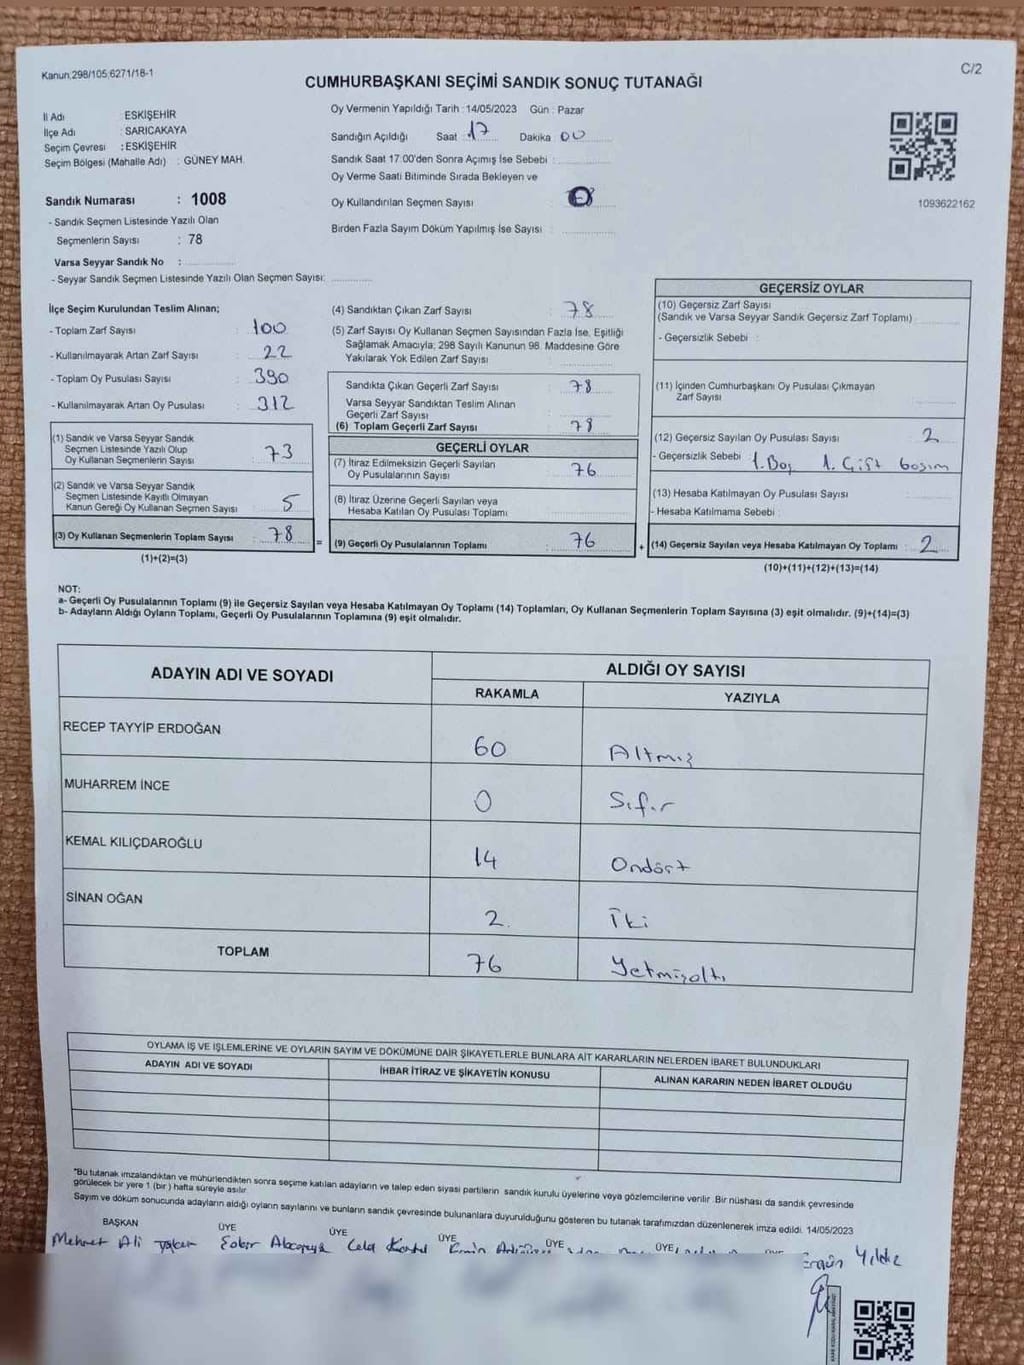 Kanun;298/105;6271/18-1
C/2
CUMHURBAŞKANI SEÇİMİ SANDIK SONUÇ TUTANAĞI
İl Adı : ESKİŞEHİR
İlçe Adı : SARICAKAYA
Seçim Çevresi : ESKİŞEHİR
Seçim Bölgesi (Mahalle Adı) : GÜNEY MAH.
Oy Vermenin Yapıldığı Tarih : 14/05/2023 Gün : Pazar
Sandığın Açıldığı Saat 17 Dakika 00
Sandık Saat 17:00'den Sonra Açımış İse Sebebi :
Oy Verme Saati Bitiminde Sırada Bekleyen ve
Oy Kullandırılan Seçmen Sayısı :
Birden Fazla Sayım Döküm Yapılmış İse Sayısı :
1093622162
Sandık Numarası : 1008
- Sandık Seçmen Listesinde Yazılı Olan
Seçmenlerin Sayısı : 78
Varsa Seyyar Sandık No :
- Seyyar Sandık Seçmen Listesinde Yazılı Olan Seçmen Sayısı:
İlçe Seçim Kurulundan Teslim Alınan;
- Toplam Zarf Sayısı : 100
- Kullanılmayarak Artan Zarf Sayısı : 22
- Toplam Oy Pusulası Sayısı : 390
- Kullanılmayarak Artan Oy Pusulası : 312
(1) Sandık ve Varsa Seyyar Sandık
Seçmen Listesinde Yazılı Olup
Oy Kullanan Seçmenlerin Sayısı : 73
(2) Sandık ve Varsa Seyyar Sandık
Seçmen Listesinde Kayıtlı Olmayan
Kanun Gereği Oy Kullanan Seçmen Sayısı : 5
(3) Oy Kullanan Seçmenlerin Toplam Sayısı : 78
(1)+(2)=(3)
=
(4) Sandıktan Çıkan Zarf Sayısı : 78
(5) Zarf Sayısı Oy Kullanan Seçmen Sayısından Fazla İse, Eşitliği
Sağlamak Amacıyla; 298 Sayılı Kanunun 98. Maddesine Göre
Yakılarak Yok Edilen Zarf Sayısı :
Sandıkta Çıkan Geçerli Zarf Sayısı : 78
Varsa Seyyar Sandıktan Teslim Alınan
Geçerli Zarf Sayısı
(6) Toplam Geçerli Zarf Sayısı : 78
GEÇERLİ OYLAR
(7) İtiraz Edilmeksizin Geçerli Sayılan
Oy Pusulasının Sayısı : 76
(8) İtiraz Üzerine Geçerli Sayılan veya
Hesaba Katılan Oy Pusulası Toplamı :
(9) Geçerli Oy Pusulalarının Toplamı : 76
+
GEÇERSİZ OYLAR
(10) Geçersiz Zarf Sayısı
(Sandık ve Varsa Seyyar Sandık Geçersiz Zarf Toplamı) :
- Geçersizlik Sebebi :
(11) İçinden Cumhurbaşkanı Oy Pusulası Çıkmayan
Zarf Sayısı :
(12) Geçersiz Sayılan Oy Pusulası Sayısı : 2
- Geçersizlik Sebebi : 1. Boş 1. Çift basım
(13) Hesaba Katılmayan Oy Pusulası Sayısı :
- Hesaba Katılmama Sebebi :
(14) Geçersiz Sayılan veya Hesaba Katılmayan Oy Toplamı : 2
(10)+(11)+(12)+(13)=(14)
NOT:
a- Geçerli Oy Pusulalarının Toplamı (9) ile Geçersiz Sayılan veya Hesaba Katılmayan Oy Toplamı (14) Toplamları, Oy Kullanan Seçmenlerin Toplam Sayısına (3) eşit olmalıdır. (9)+(14)=(3)
b- Adayların Aldığı Oyların Toplamı, Geçerli Oy Pusulalarının Toplamına (9) eşit olmalıdır.
ADAYIN ADI VE SOYADI
ALDIĞI OY SAYISI
RAKAMLA YAZIYLA
RECEP TAYYİP ERDOĞAN 60 Altmış
MUHARREM İNCE 0 Sıfır
KEMAL KILIÇDAROĞLU 14 Ondört
SİNAN OĞAN 2. İki
TOPLAM 76 Yetmişaltı
OYLAMA İŞ VE İŞLEMLERİNE VE OYLARIN SAYIM VE DÖKÜMÜNE DAİR ŞİKAYETLERLE BUNLARA AİT KARARLARIN NELERDEN İBARET BULUNDUKLARI
ADAYIN ADI VE SOYADI İHBAR İTİRAZ VE ŞİKAYETİN KONUSU ALINAN KARARIN NEDEN İBARET OLDUĞU
"Bu tutanak imzalandıktan ve mühürlendikten sonra seçime katılan adayların ve talep eden siyasi partilerin sandık kurulu üyelerine veya gözlemcilerine verilir. Bir nüshası da sandık çevresinde
görülecek bir yere 1 (bir) hafta süreyle asılır.
Sayım ve döküm sonucunda adayların aldığı oyların sayılarını ve bunların sandık çevresinde bulunanlara duyurulduğunu gösteren bu tutanak tarafımızdan düzenlenerek imza edildi. 14/05/2023
BAŞKAN ÜYE ÜYE ÜYE ÜYE ÜYE
Mehmet Ali Celal Ergün Yıldız